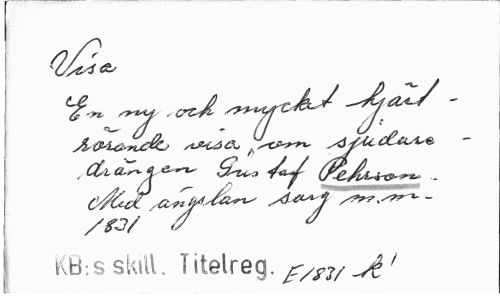 Visa
En ny och mycket hjärt-
rörande visa, om sjudare-
drängen Gustaf Pehrson.
Med ängslan sorg m.m.
1831
KB:s skill. Titelreg. E1831 k'